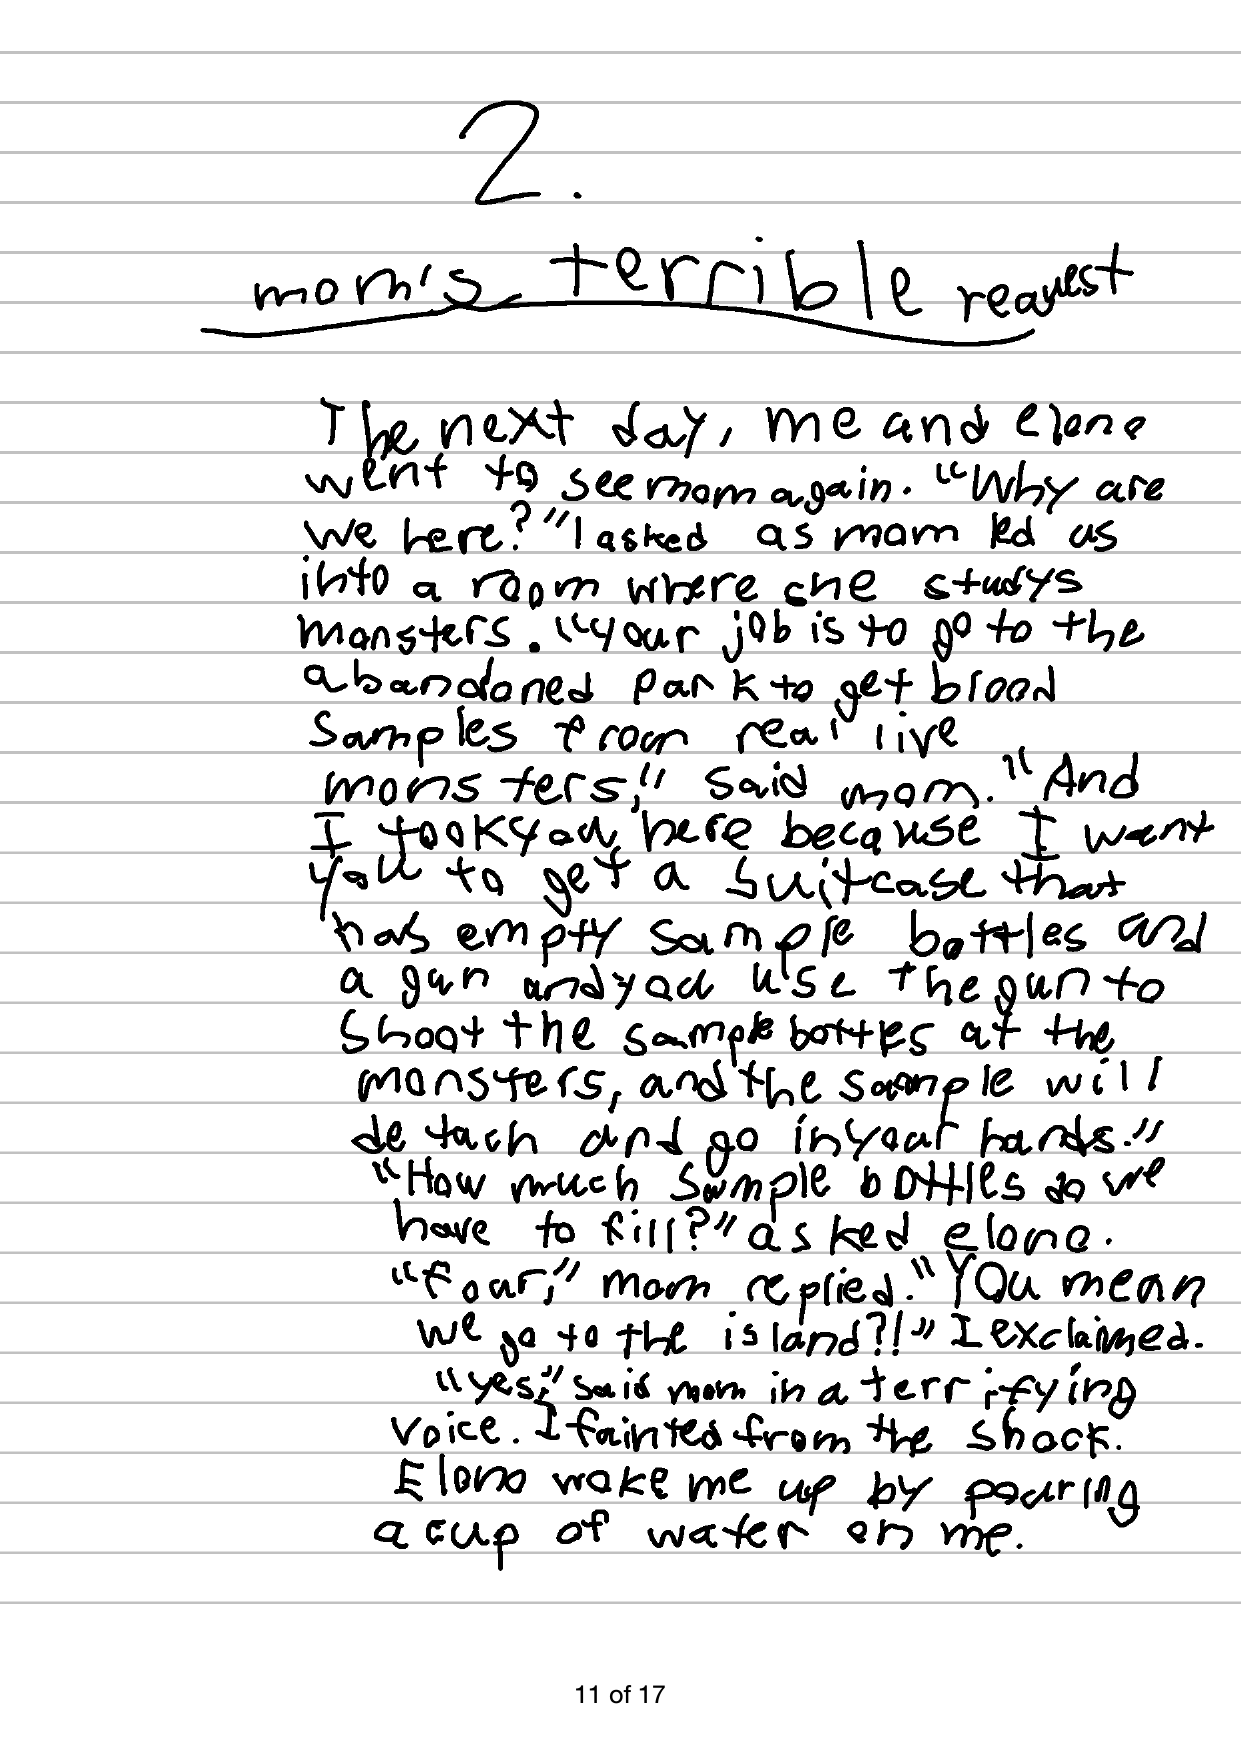 2.
mom's terrible request
The next day, me and elona
went to see mom again. "Why are
we here?" I asked as mom led us
into a room where she studys
monsters. "your job is to go to the
abandoned park to get blood
samples from real live
monsters," said mom. "And
I took you here because I want
you to get a suitcase that
has empty sample bottles and
a gun and you use the gun to
shoot the sample bottles at the
monsters, and the sample will
detach and go in your hands."
"How much sample bottles do we
have to fill?" asked elona.
"four," mom replied. "You mean
we go to the island?!" I exclaimed.
"yes," said mom in a terrifying
voice. I fainted from the shock.
Elona woke me up by pouring
a cup of water on me.
11 of 17